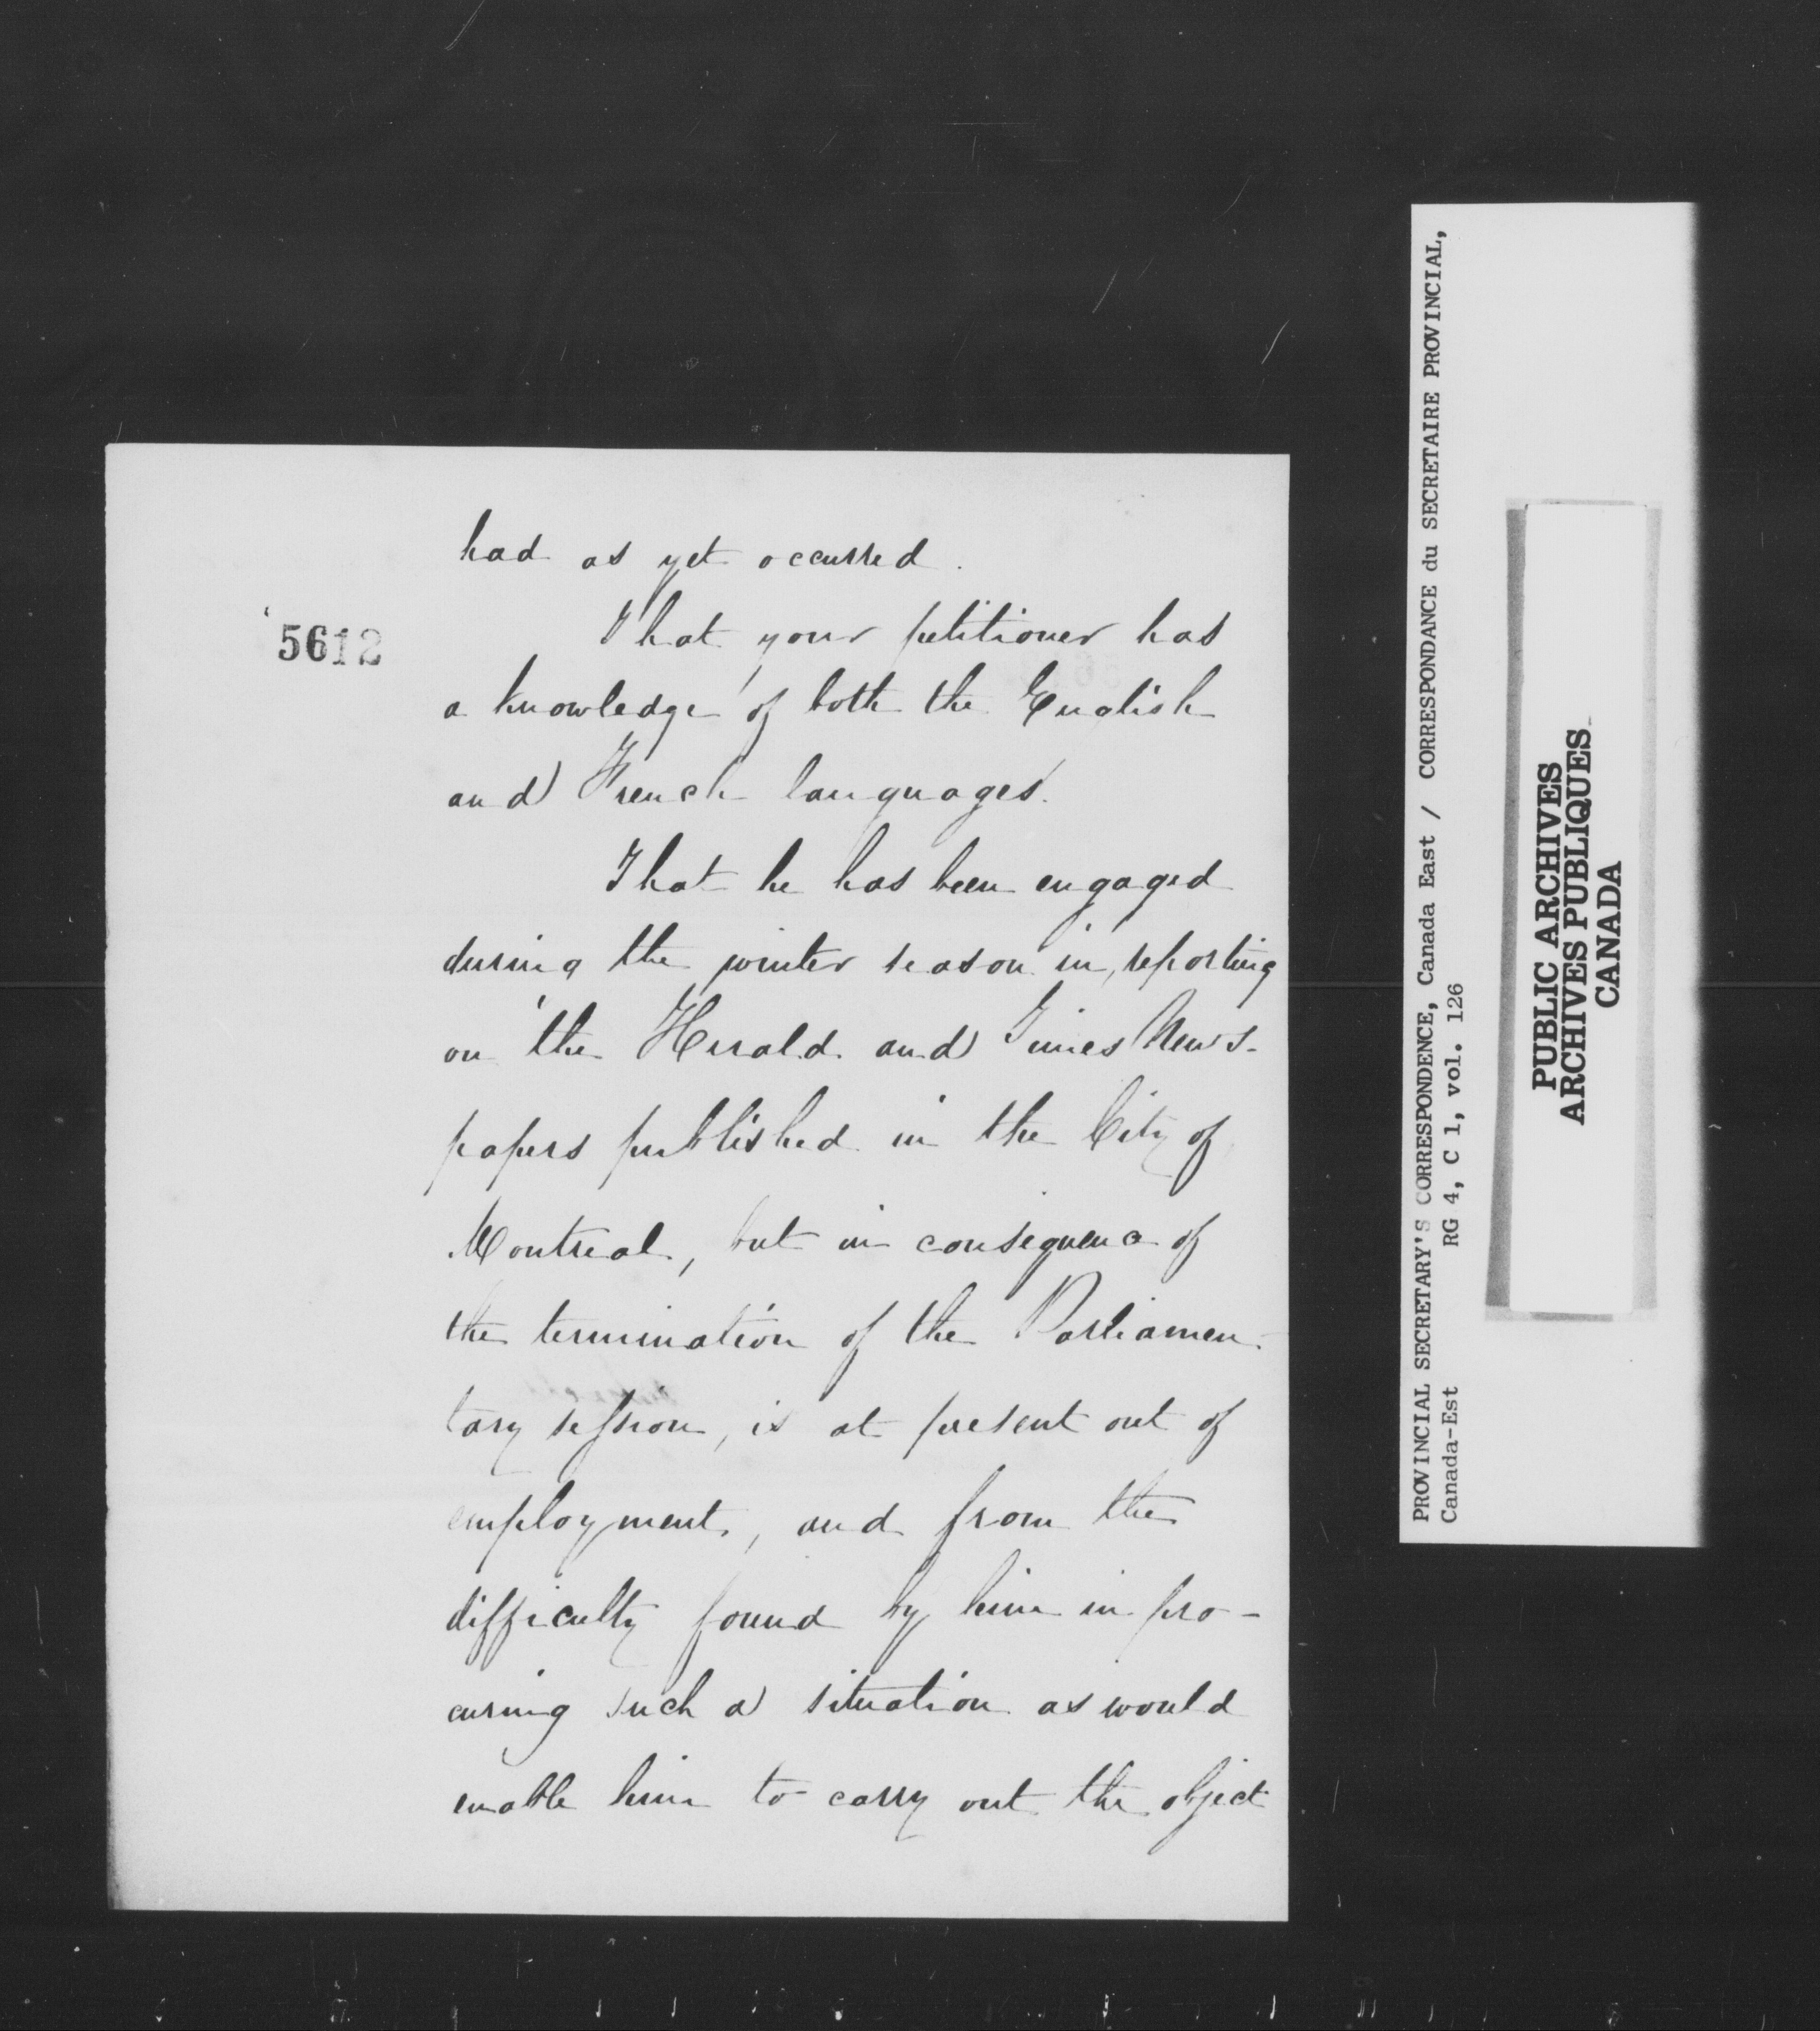 had as yet occurred.
5612
That your petitioner has
a knowledge of both the English
and French languages.
That he has been engaged
during the winter season in reporting
on the Herald and Times News-
papers published in the City of
Montreal, but in consequence of
the termination of the Parliamen-
tary session, is at present out of
employment, and from the
difficulty found by him in pro-
curing such a situation as would
enable him to carry out the object
PROVINCIAL SECRETARY'S CORRESPONDENCE, Canada East / CORRESPONDANCE du SECRETAIRE PROVINCIAL,
Canada-Est RG 4, C 1, vol. 126
PUBLIC ARCHIVES
ARCHIVES PUBLIQUES
CANADA